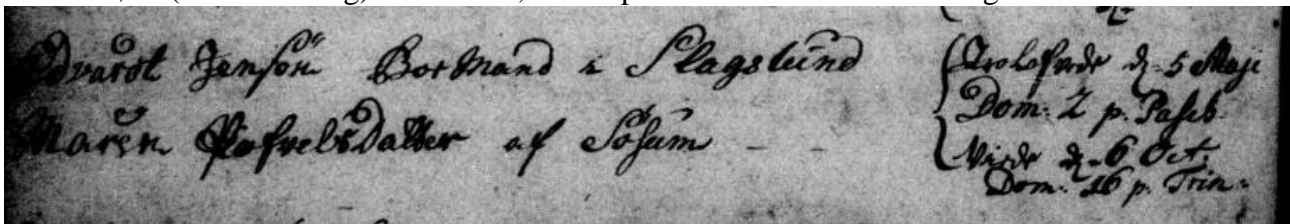 Edvardt Jensön Boemand i Slagslund
Maren Pofvelsdatter af Sösum
Trolofvede d. 5 Maji
Dom: 2 p. Pasch.
Viede d. 6 Oct.
Dom: 16 p. Trin: